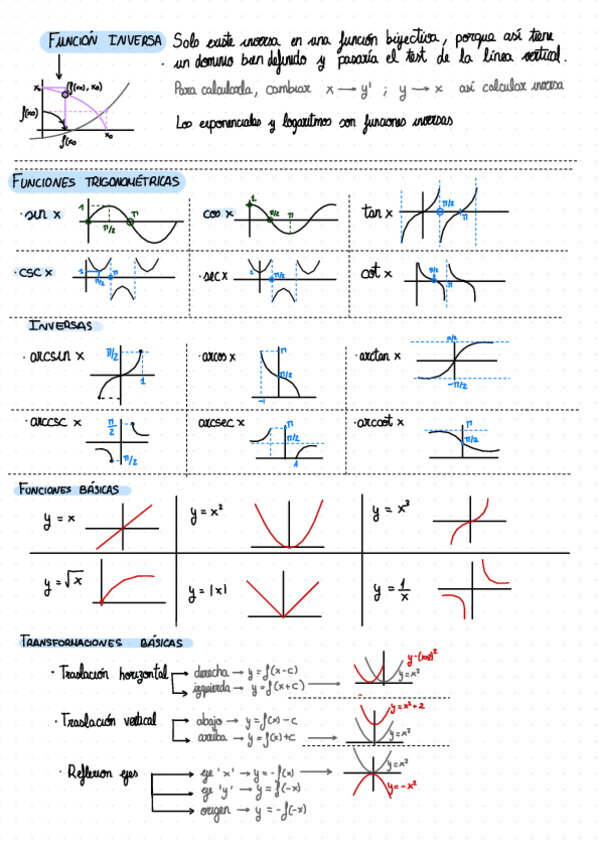 FUNCIÓN INVERSA
Solo existe inversa en una función biyectiva, porque así tiene
un dominio bien definido y pasaría el test de la línea vertical.
Para calcularla, cambiar x → y' ; y → x así calcular inversa
Los exponenciales y logaritmos son funciones inversas
x₀ (f(x₀), x₀)
f(x₀)
f(x₀ x₀
FUNCIONES TRIGONOMÉTRICAS
· sin x 1 π/2 π
cos x 1 π/2 π
tan x π/2 π
· csc x 1 π/2 π
· sec x 1 π/2
cot x π/2 π
INVERSAS
· arcsin x π/2 1
· arcos x π π/2 -1
· arctan x π/2 -π/2
· arccsc x π/2 -π/2
arcsec x π π/2 1
· arccot x π π/2
FUNCIONES BÁSICAS
y = x
y = x²
y = x³
y = √x
y = |x|
y = 1/x
TRANSFORMACIONES BÁSICAS
· Traslación horizontal
derecha → y = f(x-c)
izquierda → y = f(x+c)
y=x²
· Traslación vertical
abajo → y = f(x) - c
arriba → y = f(x)+c
y = x²+2
y=x²
· Reflexion ejes
eje 'x' → y = -f(x)
eje 'y' → y = f(-x)
origen → y = -f(-x)
y=x²
y=-x²